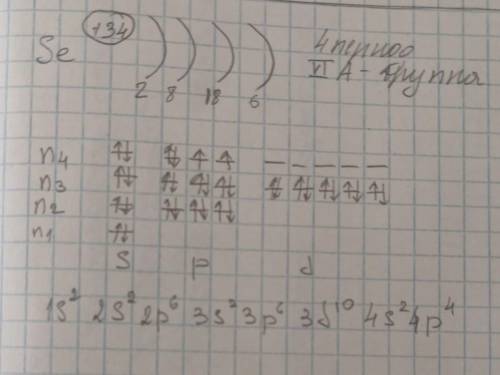 Se +34 ) ) ) ) 4 период
2 8 18 6 VI A - группа
n4 ↑↓ ↑↓ ↑ ↑ _ _ _ _ _
n3 ↑↓ ↑↓ ↑↓ ↑↓ ↑↓ ↑↓ ↑↓ ↑↓ ↑↓
n2 ↑↓ ↑↓ ↑↓ ↑↓
n1 ↑↓
s p d
1s² 2s² 2p⁶ 3s² 3p⁶ 3d¹⁰ 4s² 4p⁴